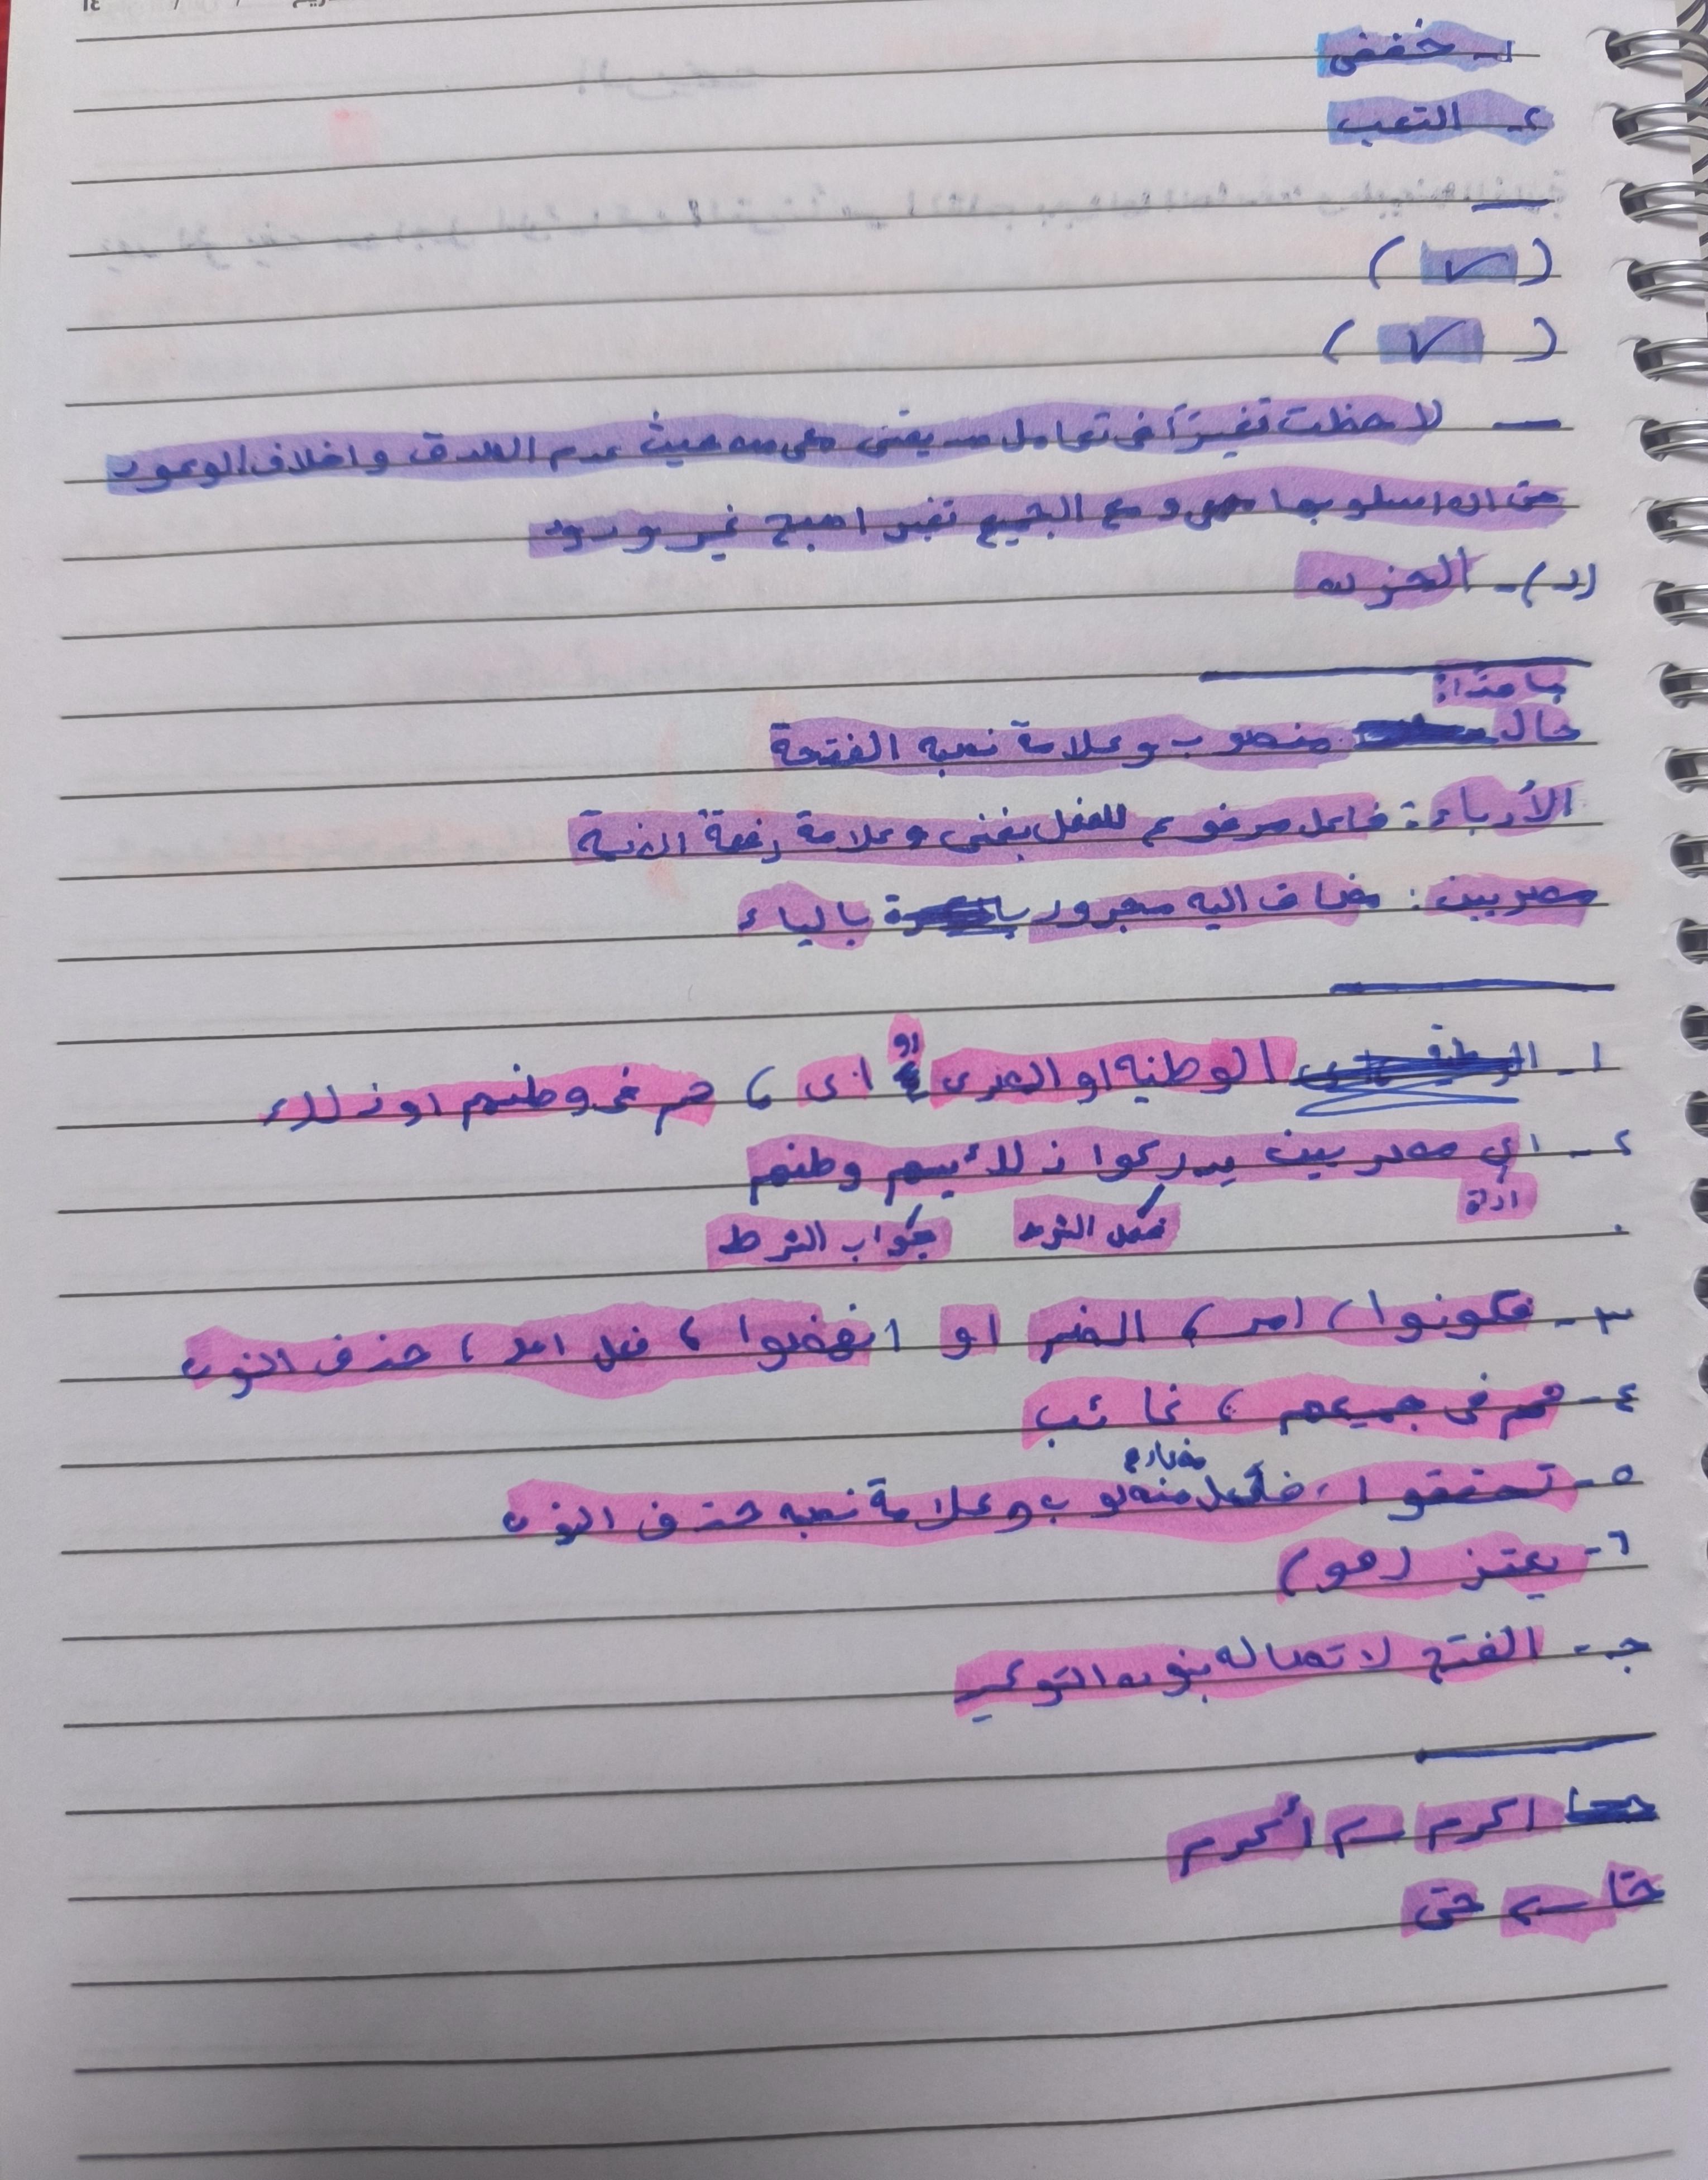 ١- خففى
٢- التعب
( ✓ )
( ✓ )
— لاحظت تغيرًا فى تعامل معى من حيث عدم الصدق واخلاف الوعود
حتى ان اسلوبها معى و مع الجميع تغير اصبح غير ودود
(د)- الحزن
جامدا:
حال منصوب وعلامة نصبه الفتحة
الأدباء: فاعل مرفوع للفعل يغنى وعلامة رفعة الضمة
مصريين: مضاف اليه مجرور بالياء
١- الوطنيه او المصرى او اى ، هم فى وطنهم او زملاء
٢- اي مصريين يدركوا وطنهم
أداة فعل الشرط جواب الشرط
٣- فكونوا ، امر ، الضم او انهضوا ، فعل امر ، حذف النون
٤- هم فى جميعهم ، غائب
مضارع
٥- تحققوا ، فعل منصوب وعلامة نصبه حذف النون
٦- يعتز (هو)
جـ- الفتح لاتصاله بنون التوكيد
اكرم ← أكرم
حتا ← حتى